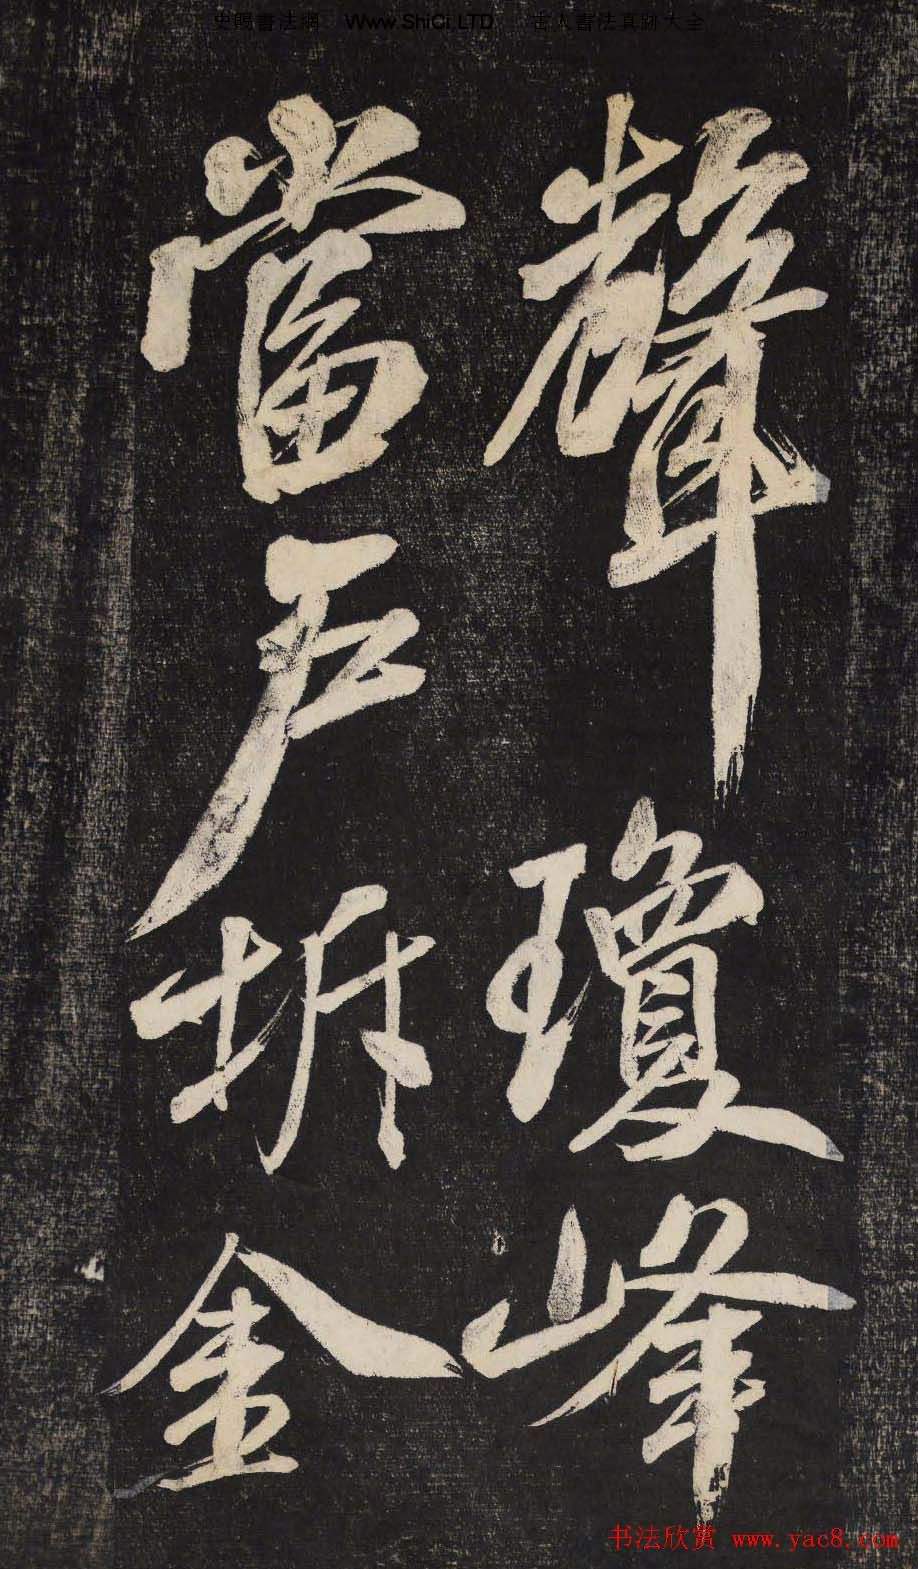 Www.ShiCi.LTD 古人書法真跡大全
聲瓊峰
當户坼金
书法欣赏 www.yac8.com